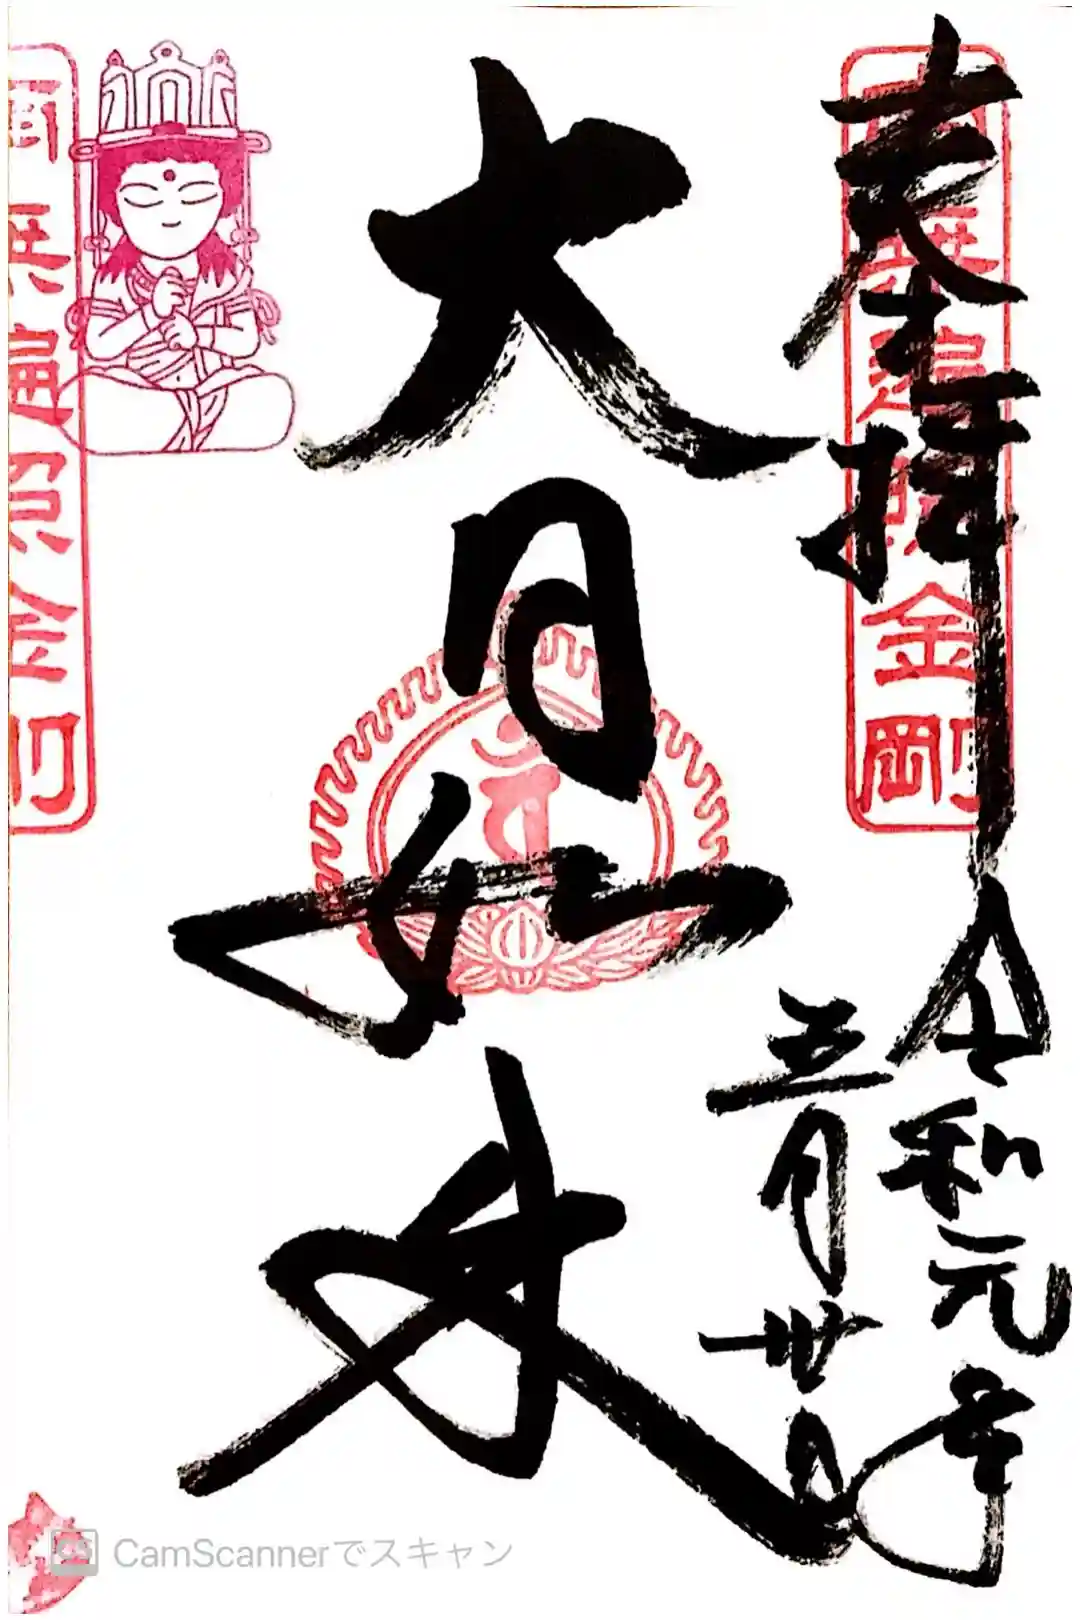 奉拝
南無遍照金剛
令和元年
五月卅日
大日如来
南無遍照金剛
CamScannerでスキャン